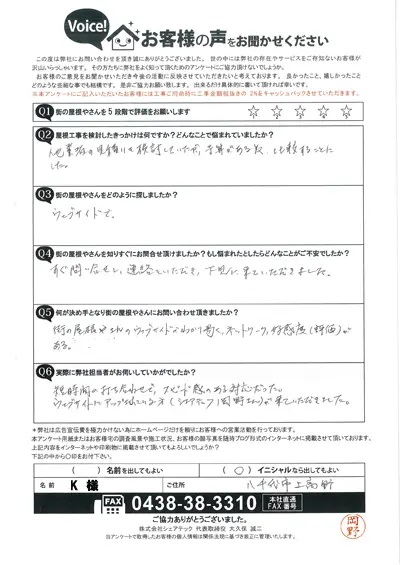 Voice!
お客様の声をお聞かせください
この度は弊社にお問い合わせを頂き誠にありがとうございました。世の中には弊社の存在やサービスをご存知ないお客様が
沢山いらっしゃいます。その方たちに弊社をよく知って頂くためのアンケートにご協力頂けないでしょうか。
お客様のご意見をお聞かせいただき今後の活動に反映させていただきたいと考えております。良かったこと、嬉しかったこと
どのような些細な事でも結構です。是非ご協力お願い致します。出来るだけ具体的に書いて頂ければ幸いです。
Q1 街の屋根やさんを5段階で評価をお願いします ☆ ☆ ☆ ☆ ☆
Q2 屋根工事を検討したきっかけは何ですか？どんなことで悩まれていましたか？
した。
Q3 街の屋根やさんをどのように探しましたか？
ウェブサイトで。
Q4 街の屋根やさんを知りすぐにお問合せ頂けましたか？もし悩まれたとしたらどんなことがご不安でしたか？
すぐ問い合せし、連絡をいただき、下見に来ていただきました。
Q5 何が決め手となり街の屋根やさんにお問い合わせ頂きましたか？
街の屋根やさんのウェブサイトがわかり易く、ネットワーク、好感度(評価)が
ある。
Q6 実際に弊社担当者がお伺いしていかがでしたか？
短時間の打ち合わせで、スピード感のある対応だった。
ウェブサイトにアップされている方(シェアテック岡野さん)が来ていただきました。
＊弊社は広告宣伝費を極力かけない為にホームページだけを頼りにお客様への営業活動を行っております。
本アンケート用紙またはお客様宅の調査風景や施工状況、お客様の顔写真を随時ブログ形式のインターネットに掲載させて頂いております。
上記内容をインターネットや印刷物に掲載させて頂いてもよろしいでしょうか？
下記の中から〇印をお付け下さい。
( )名前を出してもよい (〇)イニシャルなら出してもよい
名前 K 様 ご住所 八千代市上高野
FAX 0438-38-3310 本社直通 FAX番号
ご協力ありがとうございました。
株式会社シェアテック 代表取締役 大久保 誠二
当アンケートで取得したお客様の個人情報は関係法規に基づき厳正に管理いたします。
岡野